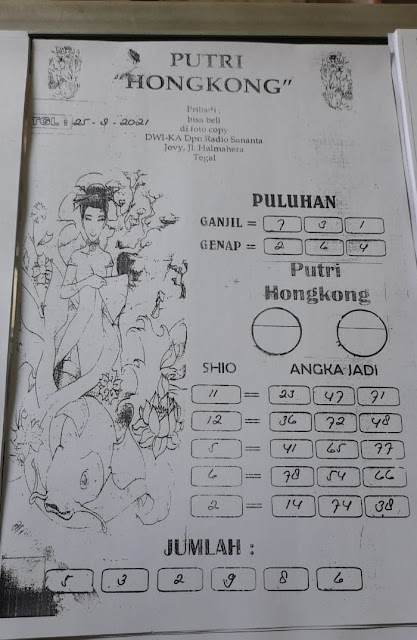 PUTRI
"HONGKONG"
TGL : 25 - 9 - 2021
Pribadi :
bisa beli
di foto copy
DWI-KA Dpn Radio Sananta
Jovy, Jl. Halmahera
Tegal
PULUHAN
GANJIL = 7 3 1
GENAP = 2 6 4
Putri
Hongkong
SHIO ANGKA JADI
11 = 23 47 71
12 = 36 72 48
5 = 41 65 77
6 = 78 54 66
2 = 14 74 38
JUMLAH :
5 3 2 9 8 6